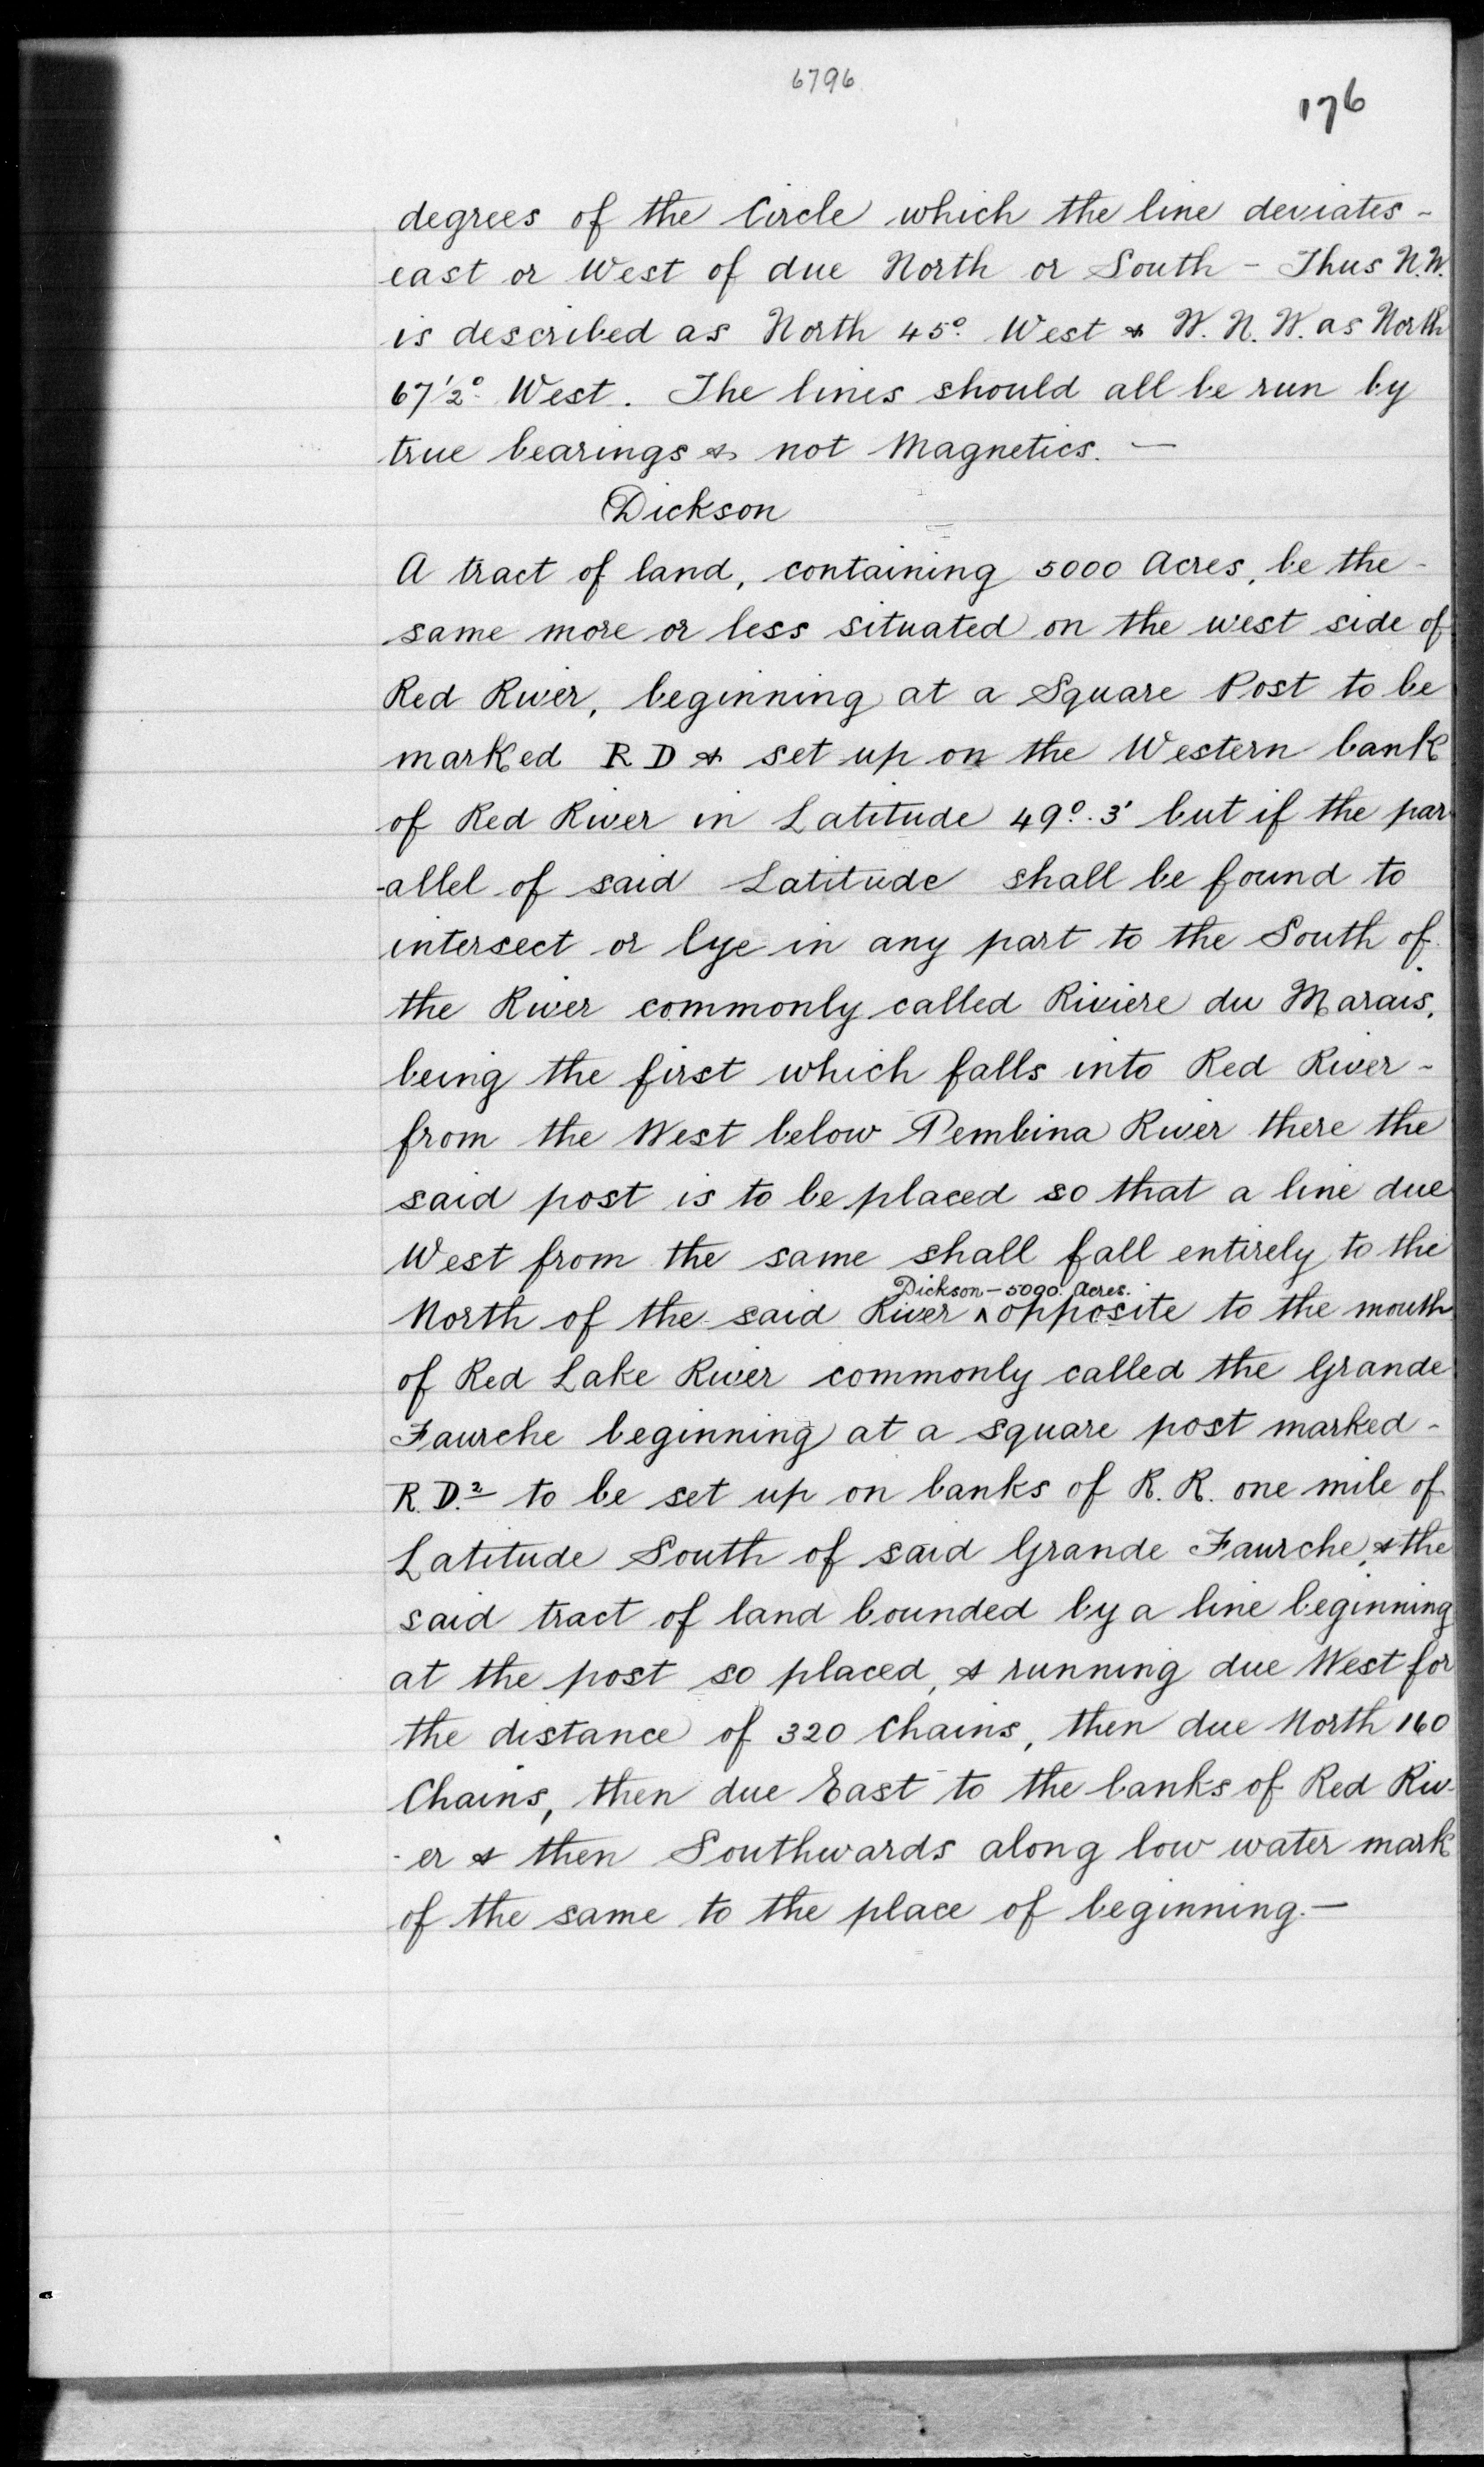 6796
176
degrees of the Circle which the line deviates -
east or West of due North or South - Thus N.W.
is described as North 45° West & W. N. W. as North
67 1/2° West. The lines should all be run by
true bearings & not Magnetics. —
Dickson
A tract of land, containing 5000 Acres, be the -
same more or less situated on the west side of
Red River, beginning at a Square Post to be
marked R D & set up on the Western bank
of Red River in Latitude 49°. 3' but if the par
-allel of said Latitude shall be found to
intersect or lye in any part to the South of
the River commonly called Riviere du Marais,
being the first which falls into Red River -
from the West below Pembina River there the
said post is to be placed so that a line due
West from the same shall fall entirely to the
Dickson - 5000 Acres.
North of the said River ^ opposite to the mouth
of Red Lake River commonly called the Grande
Faurche beginning at a square post marked -
R. D.² to be set up on banks of R. R. one mile of
Latitude South of said Grande Faurche, & the
said tract of land bounded by a line beginning
at the post so placed, & running due West for
the distance of 320 Chains, then due North 160
Chains, then due East to the banks of Red Riv-
-er & then Southwards along low water mark
of the same to the place of beginning. —